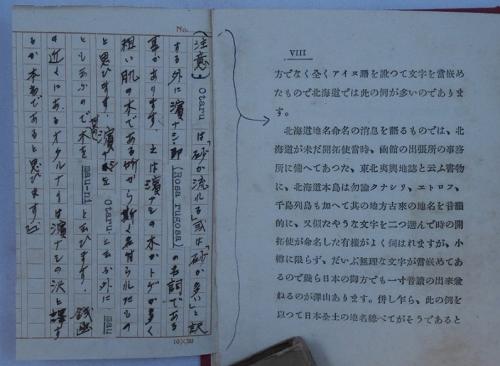 VIII
方でなく全くアイヌ語を訛つて文字を當嵌め
たもので北海道では此の例が多いのでありま
す。
北海道地名命名の消息を語るものでは、北
海道が未だ開拓使當時、函館の出張所の事務
所に備へてあつた、東北夷輿地誌と云ふ書物
に、北海道本島は勿論クナシリ、エトロフ、
千島列島も加へて其の地方古來の地名を音韻
的に、又似たやうな文字を二つ選んで時の開
拓使が命名した有樣がよく伺はれますが、小
樽に限らず、だいぶ無理な文字が當嵌めてあ
るので幾ら日本の御方でも一寸讀の出來兼
ねるのが澤山あります。併し乍ら、此の例を
以つて日本全土の地名總べてがそうであると
No.
(注意) Otaru は「砂が流れる」或は「砂が多い」と訳
する外に濱ナシ即(Rosa rugosa)の名詞である
事があります。土は濱ナシの木がトゲが多く
粗い肌の木である故から斯く名付られたもの
と思ひます。濱ナシを Otaru と云ふ外に mau
とも云ふので木を mau-ni と云ひます。錢函
の近くにあるオタルナイは濱ナシの沢と譯す
るが本当であると思ひます。
10×20